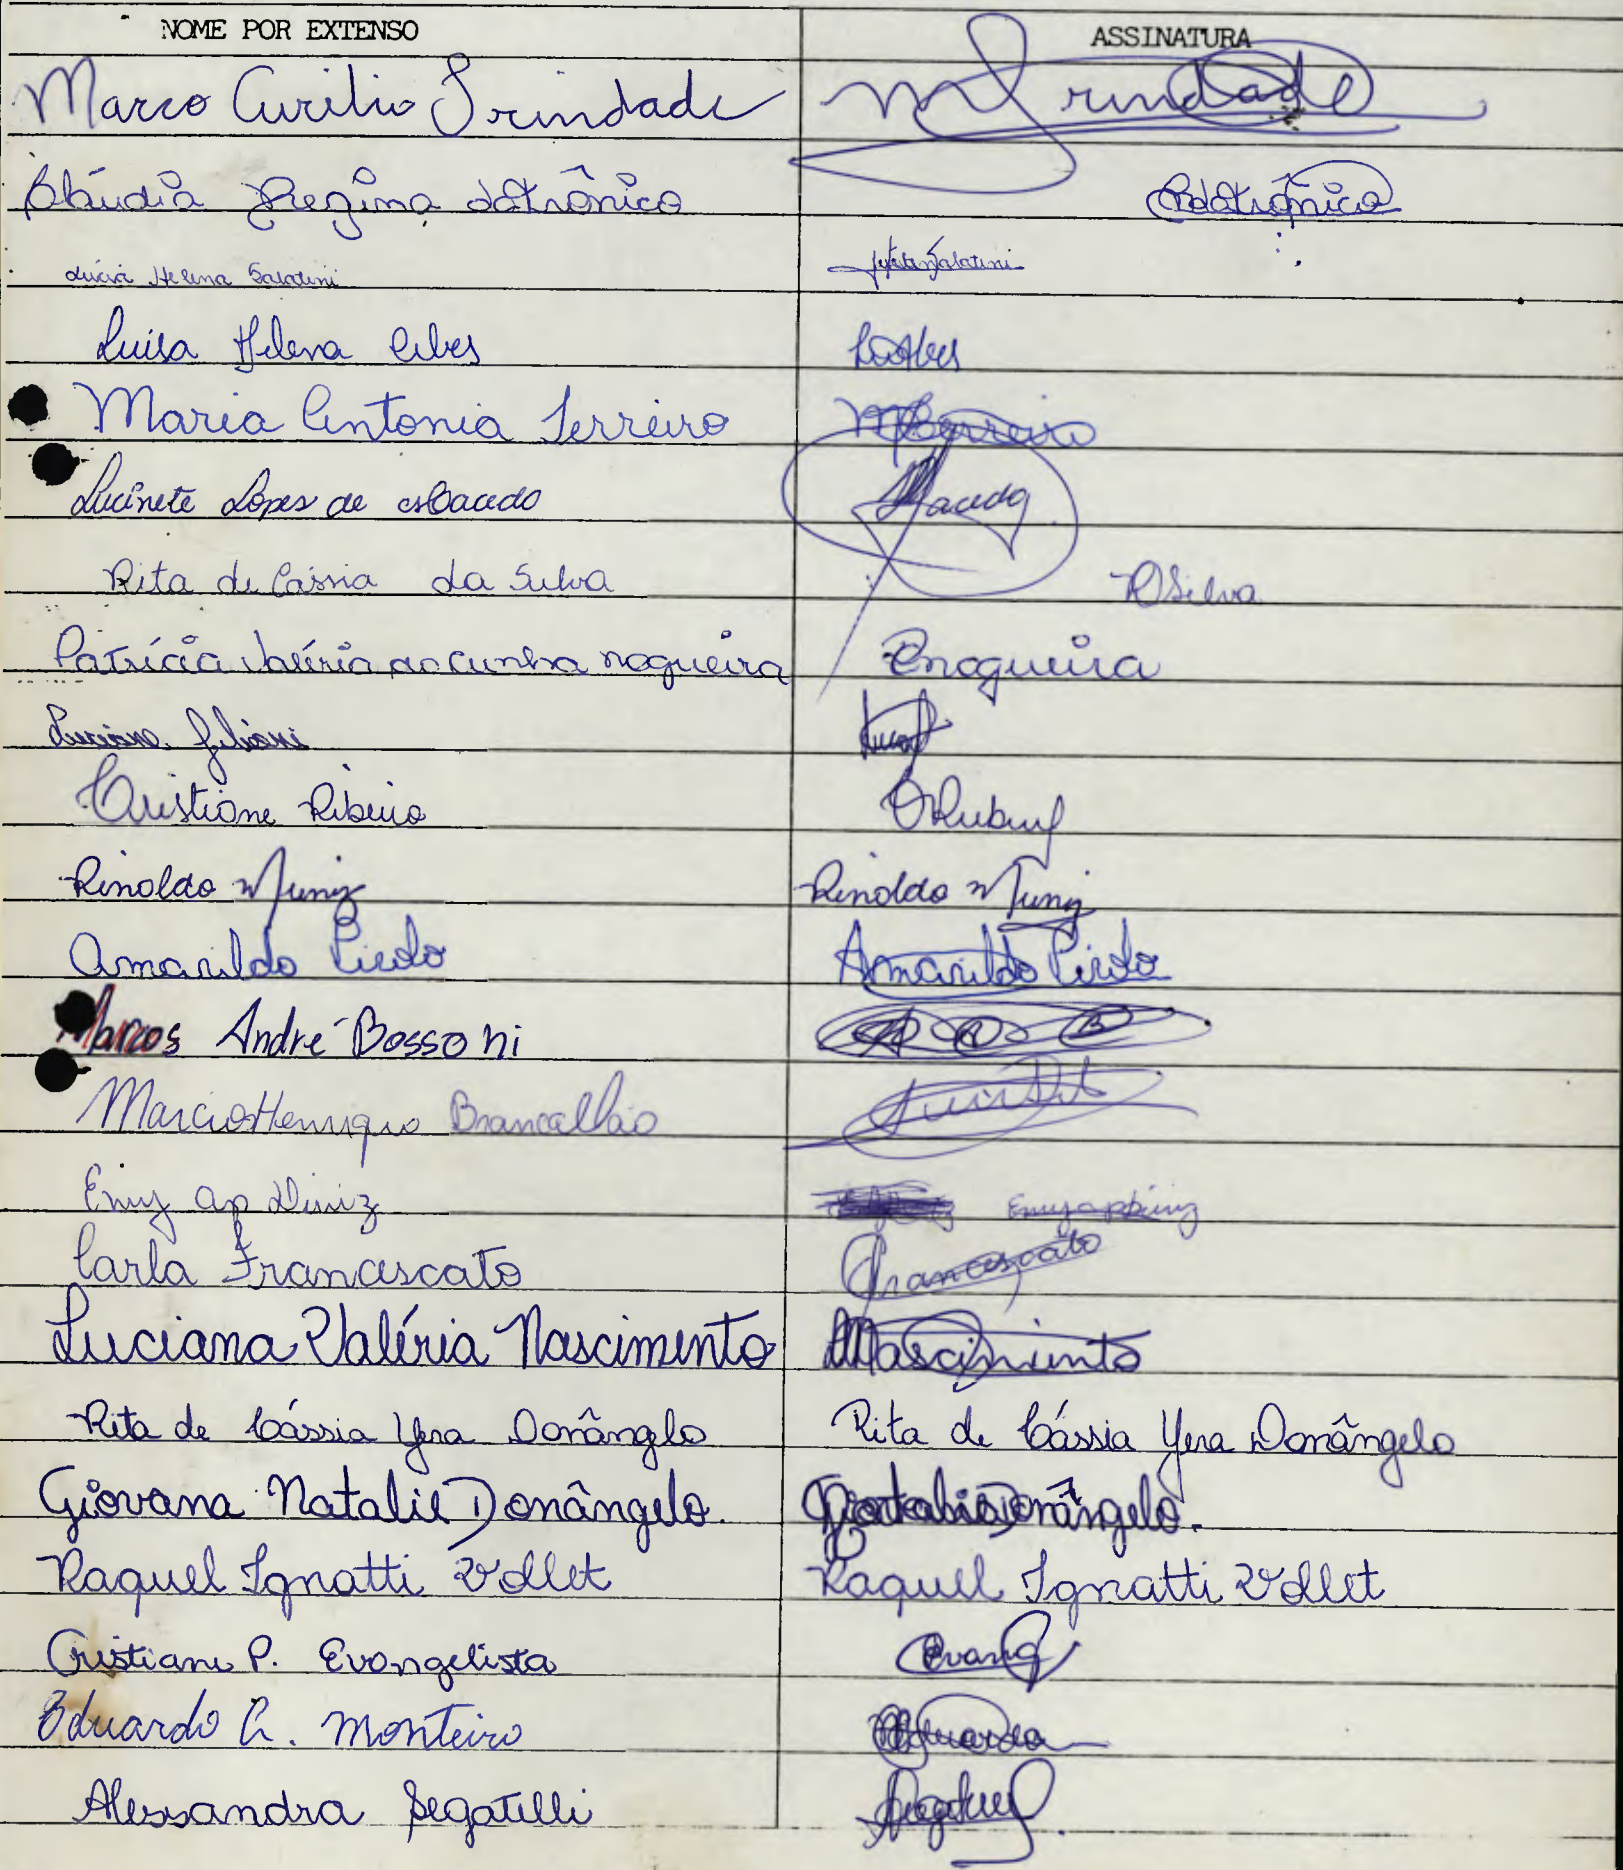 NOME POR EXTENSO ASSINATURA
Marco Aurélio Trindade MTrindade
Cláudia Regina Lotrônico
Lúcia Helena Salatini
Luisa Helena Alves LHAlves
Maria Antonia Ferreiro MAFerreiro
Lucinete Lopes de Macedo Macedo
Rita de Cássia da Silva RSilva
Patrícia Valéria da Cunha Nogueira PNogueira
Luciana Juliani
Cristiane Ribeiro CRibeiro
Rinaldo Muniz Rinaldo Muniz
Amarildo Pirolo Amarildo Pirolo
Marcos André Bossoni
Marcio Henrique Brancalhão
Emy Ap Diniz Emy Ap Diniz
Carla Francescato Francescato
Luciana Valéria Nascimento Nascimento
Rita de Cássia Yera Donângelo Rita de Cássia Yera Donângelo
Giovana Natalie Donângelo. Donângelo.
Raquel Ignatti Vollet Raquel Ignatti Vollet
Cristiane P. Evangelista Evang
Eduardo A. Monteiro Eduardo
Alessandra Segatelli